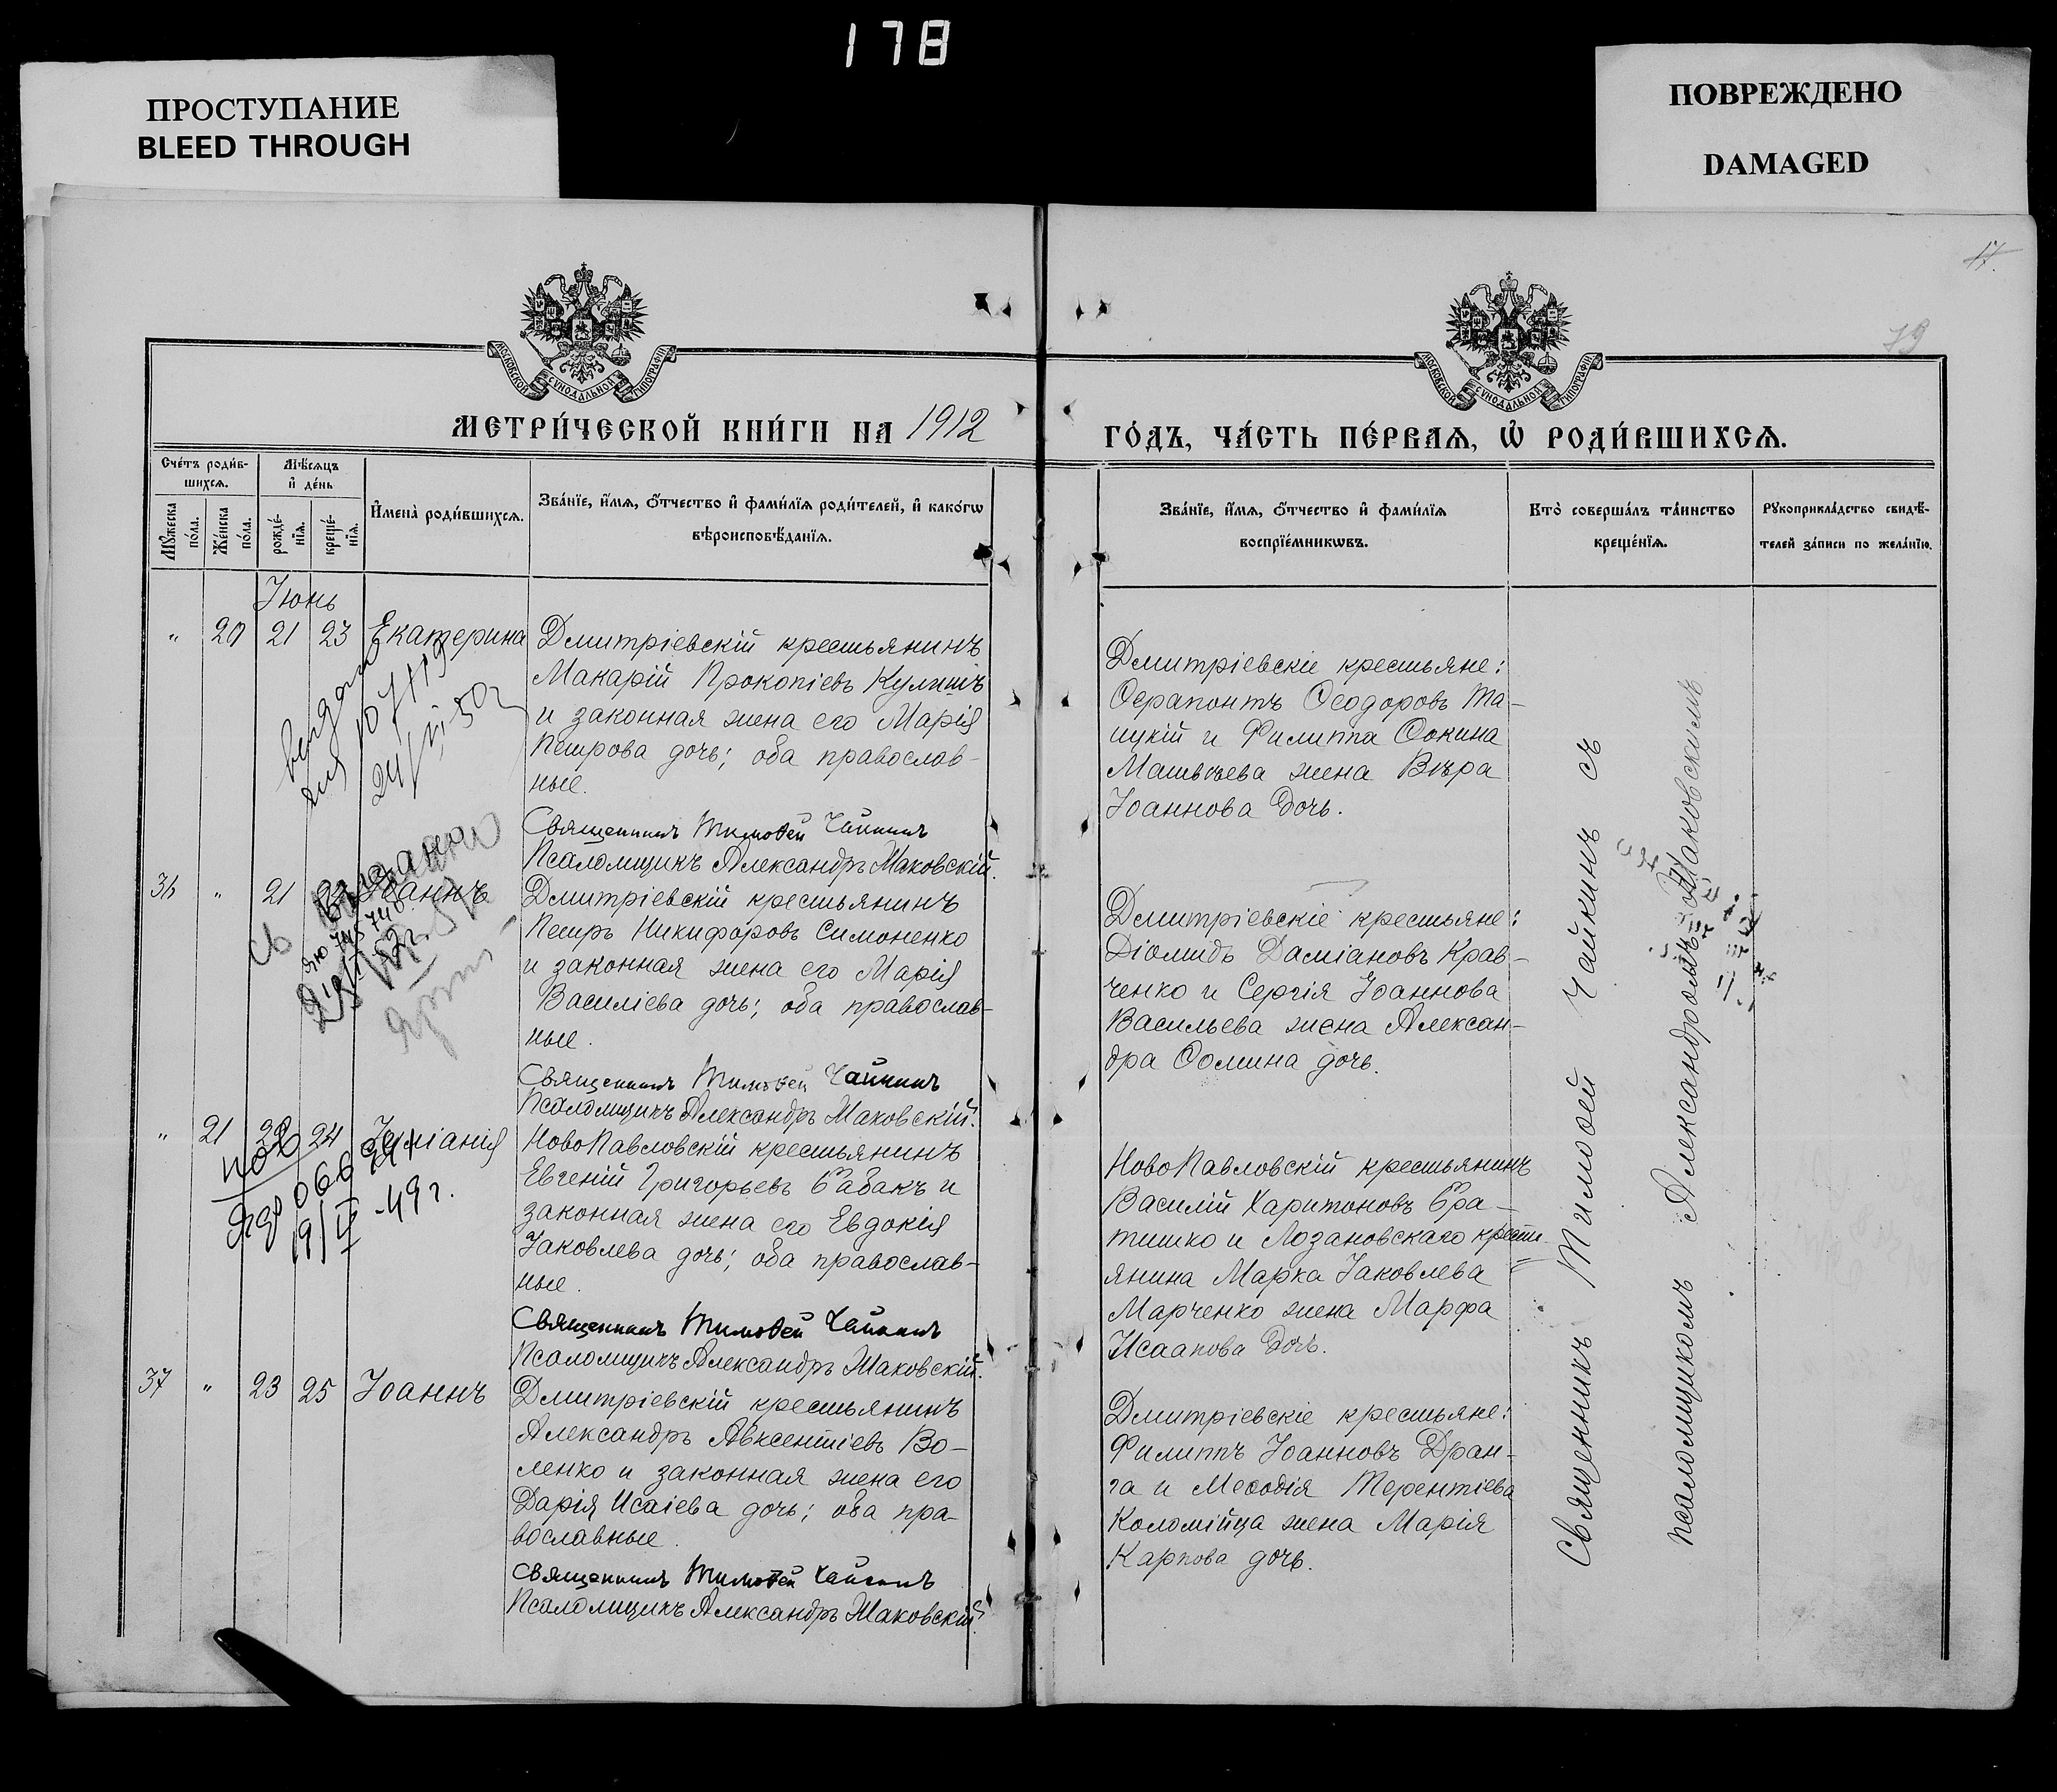 178
ПРОСТУПАНИЕ
BLEED THROUGH
ПОВРЕЖДЕНО
DAMAGED
17.
79
МОСКОВСКОЙ СѴНОДАЛЬНОЙ ТИПОГРАФІИ
МОСКОВСКОЙ СѴНОДАЛЬНОЙ ТИПОГРАФІИ
МЕТРИ́ЧЕСКОЙ КНИ́ГИ НА 1912
ГО́ДЪ, ЧА́СТЬ ПЕ́РВАѦ, Ѡ҆ РОДИ́ВШИХСѦ.
Сче́тъ роди́в-
шихсѧ.
Мꙋ́жеска
по́ла.
Же́нска
по́ла.
Мѣ́сѧцъ
и҆ де́нь
рожде́-
нїѧ.
креще́-
нїѧ.
И҆мена̀ роди́вшихсѧ.
Зва́нїе, и҆́мѧ, ѻ҆́тчество и҆ фами́лїѧ роди́телей, и҆ како́гѡ
вѣроисповѣ́данїѧ.
Зва́нїе, и҆́мѧ, ѻ҆́тчество и҆ фами́лїѧ
воспрїе́мникѡвъ.
Кто̀ соверша́лъ та́инство
креще́нїѧ.
Рꙋкоприкла́дство свидѣ́-
телей за́писи по жела́нїю.
Іюнь
" 20 21 23 Екатерина
Дмитріевскій крестьянинъ
Макарій Прокопіевъ Кулишъ
и законная жена его Марія
Петрова дочь; оба православ-
ные.
Священникъ Тимоѳей Чайкинъ
Псаломщикъ Александръ Маковскій.
Дмитріевскіе крестьяне:
Ѳерапонтъ Ѳеодоровъ Та-
ицкій и Филиппа Ѳокина
Матвѣева жена Вѣра
Іоаннова дочь.
36 " 21 Іоаннъ
Дмитріевскій крестьянинъ
Петръ Никифоровъ Симоненко
и законная жена его Марія
Василіева дочь; оба православ-
ные.
Священникъ Тимоѳей Чайкинъ
Псаломщикъ Александръ Маковскій.
Дмитріевскіе крестьяне:
Діомидъ Даміановъ Крав-
ченко и Сергія Іоаннова
Васильева жена Алексан-
дра Ѳомина дочь.
" 21 22 24 Іуліанія
НовоПавловскій крестьянинъ
Евгеній Григорьевъ Бабакъ и
законная жена его Евдокія
Іаковлева дочь; оба православ-
ные.
Священникъ Тимоѳей Чайкинъ
Псаломщикъ Александръ Маковскій.
19/IV -49 г.
НовоПавловскій крестьянинъ
Василій Харитоновъ Бра-
тишко и Лозановскаго крестъ-
янина Марка Іаковлева
Марченко жена Марфа
Исаакова дочь.
37 " 23 25 Іоаннъ
Дмитріевскій крестьянинъ
Александръ Авксентіевъ Во-
ленко и законная жена его
Дарія Исаіева дочь; оба пра-
вославные.
Священникъ Тимоѳей Чайкинъ
Псаломщикъ Александръ Маковскій.
Дмитріевскіе крестьяне:
Филиппъ Іоанновъ Дран-
га и Меѳодія Терентіева
Коломійца жена Марія
Карпова дочь.
Священникъ Тимоѳей Чайкинъ съ
псаломщикомъ Александромъ Маковскимъ